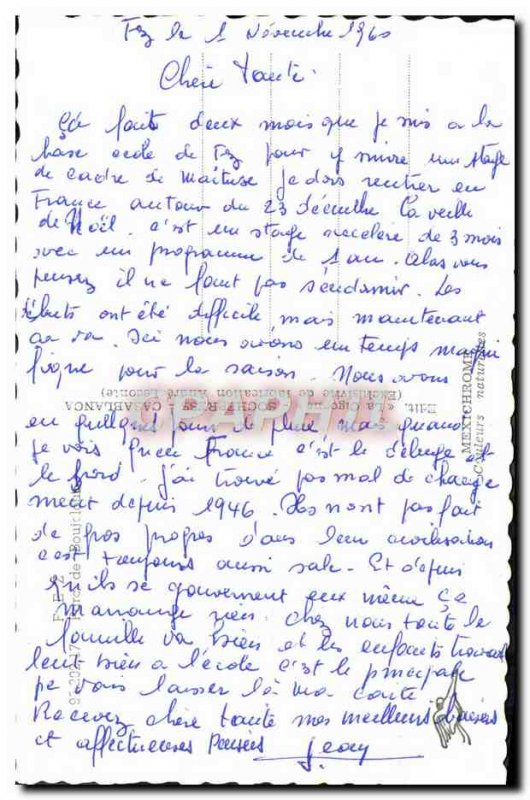 Fez le 1 Novembre 1960
Chère tante.
Ça fait deux mois que je suis a la
base école de Fez pour y suivre un stage
de cadre de maîtrise je dois rentrer en
France autour du 23 décembre la veille
de Noël. c'est un stage accéléré de 3 mois
avec un programme de 1 an. alors vous
pensez il ne faut pas s'endormir. Les
débuts ont été difficile mais maintenant
ça va. Ici nous avons un temps magni
fique pour la saison. Nous avons
eu quelques jours de pluie, mais quand
je vois qu'en France c'est le déluge et
le froid. j'ai trouvé pas mal de change
ment depuis 1946. Ils n'ont pas fait
de gros progres dans leur civilisation
c'est toujours aussi sale. Et depuis
qu'ils se gouvernent eux même ça
n'arrange rien. Chez nous toute la
famille va bien et les enfants travail
lent bien a l'école c'est le principale
je vais laisser là ma carte
Recevez chère tante mes meilleurs baisers
et affectueuses Pensées Jean
Edit. "La Cigogne" - SOCHEPRESS - CASABLANCA
(Exclusivité de fabrication André Leconte)
MEXICHROME
Couleurs naturelles